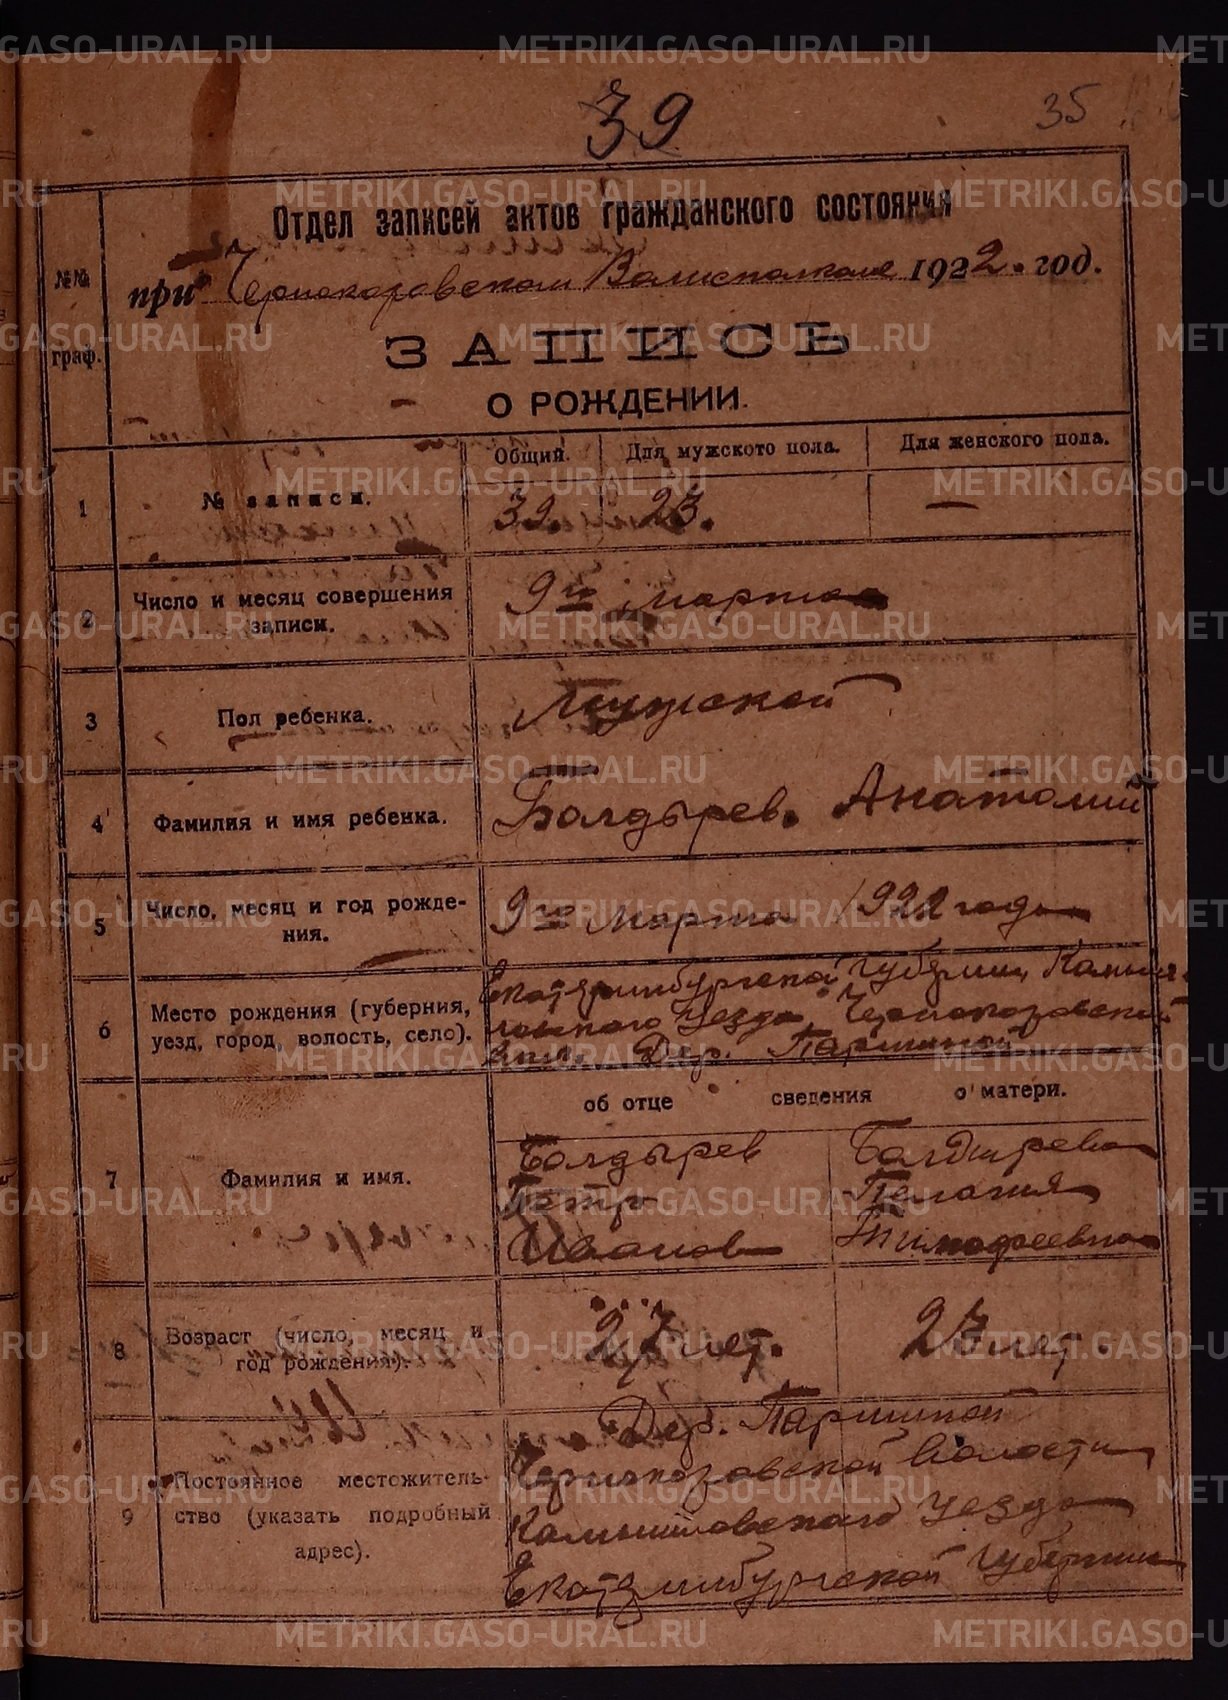 METRIKI.GASO-URAL.RU
39
35
Отдел записей актов гражданского состояния
№№ граф.
при Чернокоровском Волисполкоме 1922. год.
ЗАПИСЬ
О РОЖДЕНИИ.
Общий. Для мужского пола. Для женского пола.
1 № записи. 39. 23. —
2 Число и месяц совершения записи. 9го Марта
3 Пол ребенка. Мужской
4 Фамилия и имя ребенка. Болдырев. Анатолий
5 Число, месяц и год рождения. 9го Марта 1922 года
6 Место рождения (губерния, уезд, город, волость, село).
Екатеринбургской Губернии Камыш-
ловского Уезда Чернокоровской
вол. Дер. Паршиной
об отце сведения о матери.
7 Фамилия и имя.
Болдырев Болдырева
Петр Пелагия
Иванов Тимофеевна
8 Возраст (число, месяц и год рождения). 27 лет. 23 лет.
9 Постоянное местожительство (указать подробный адрес).
Дер. Паршиной
Чернокоровской Волости
Камышловского Уезда
Екатеринбургской Губернии